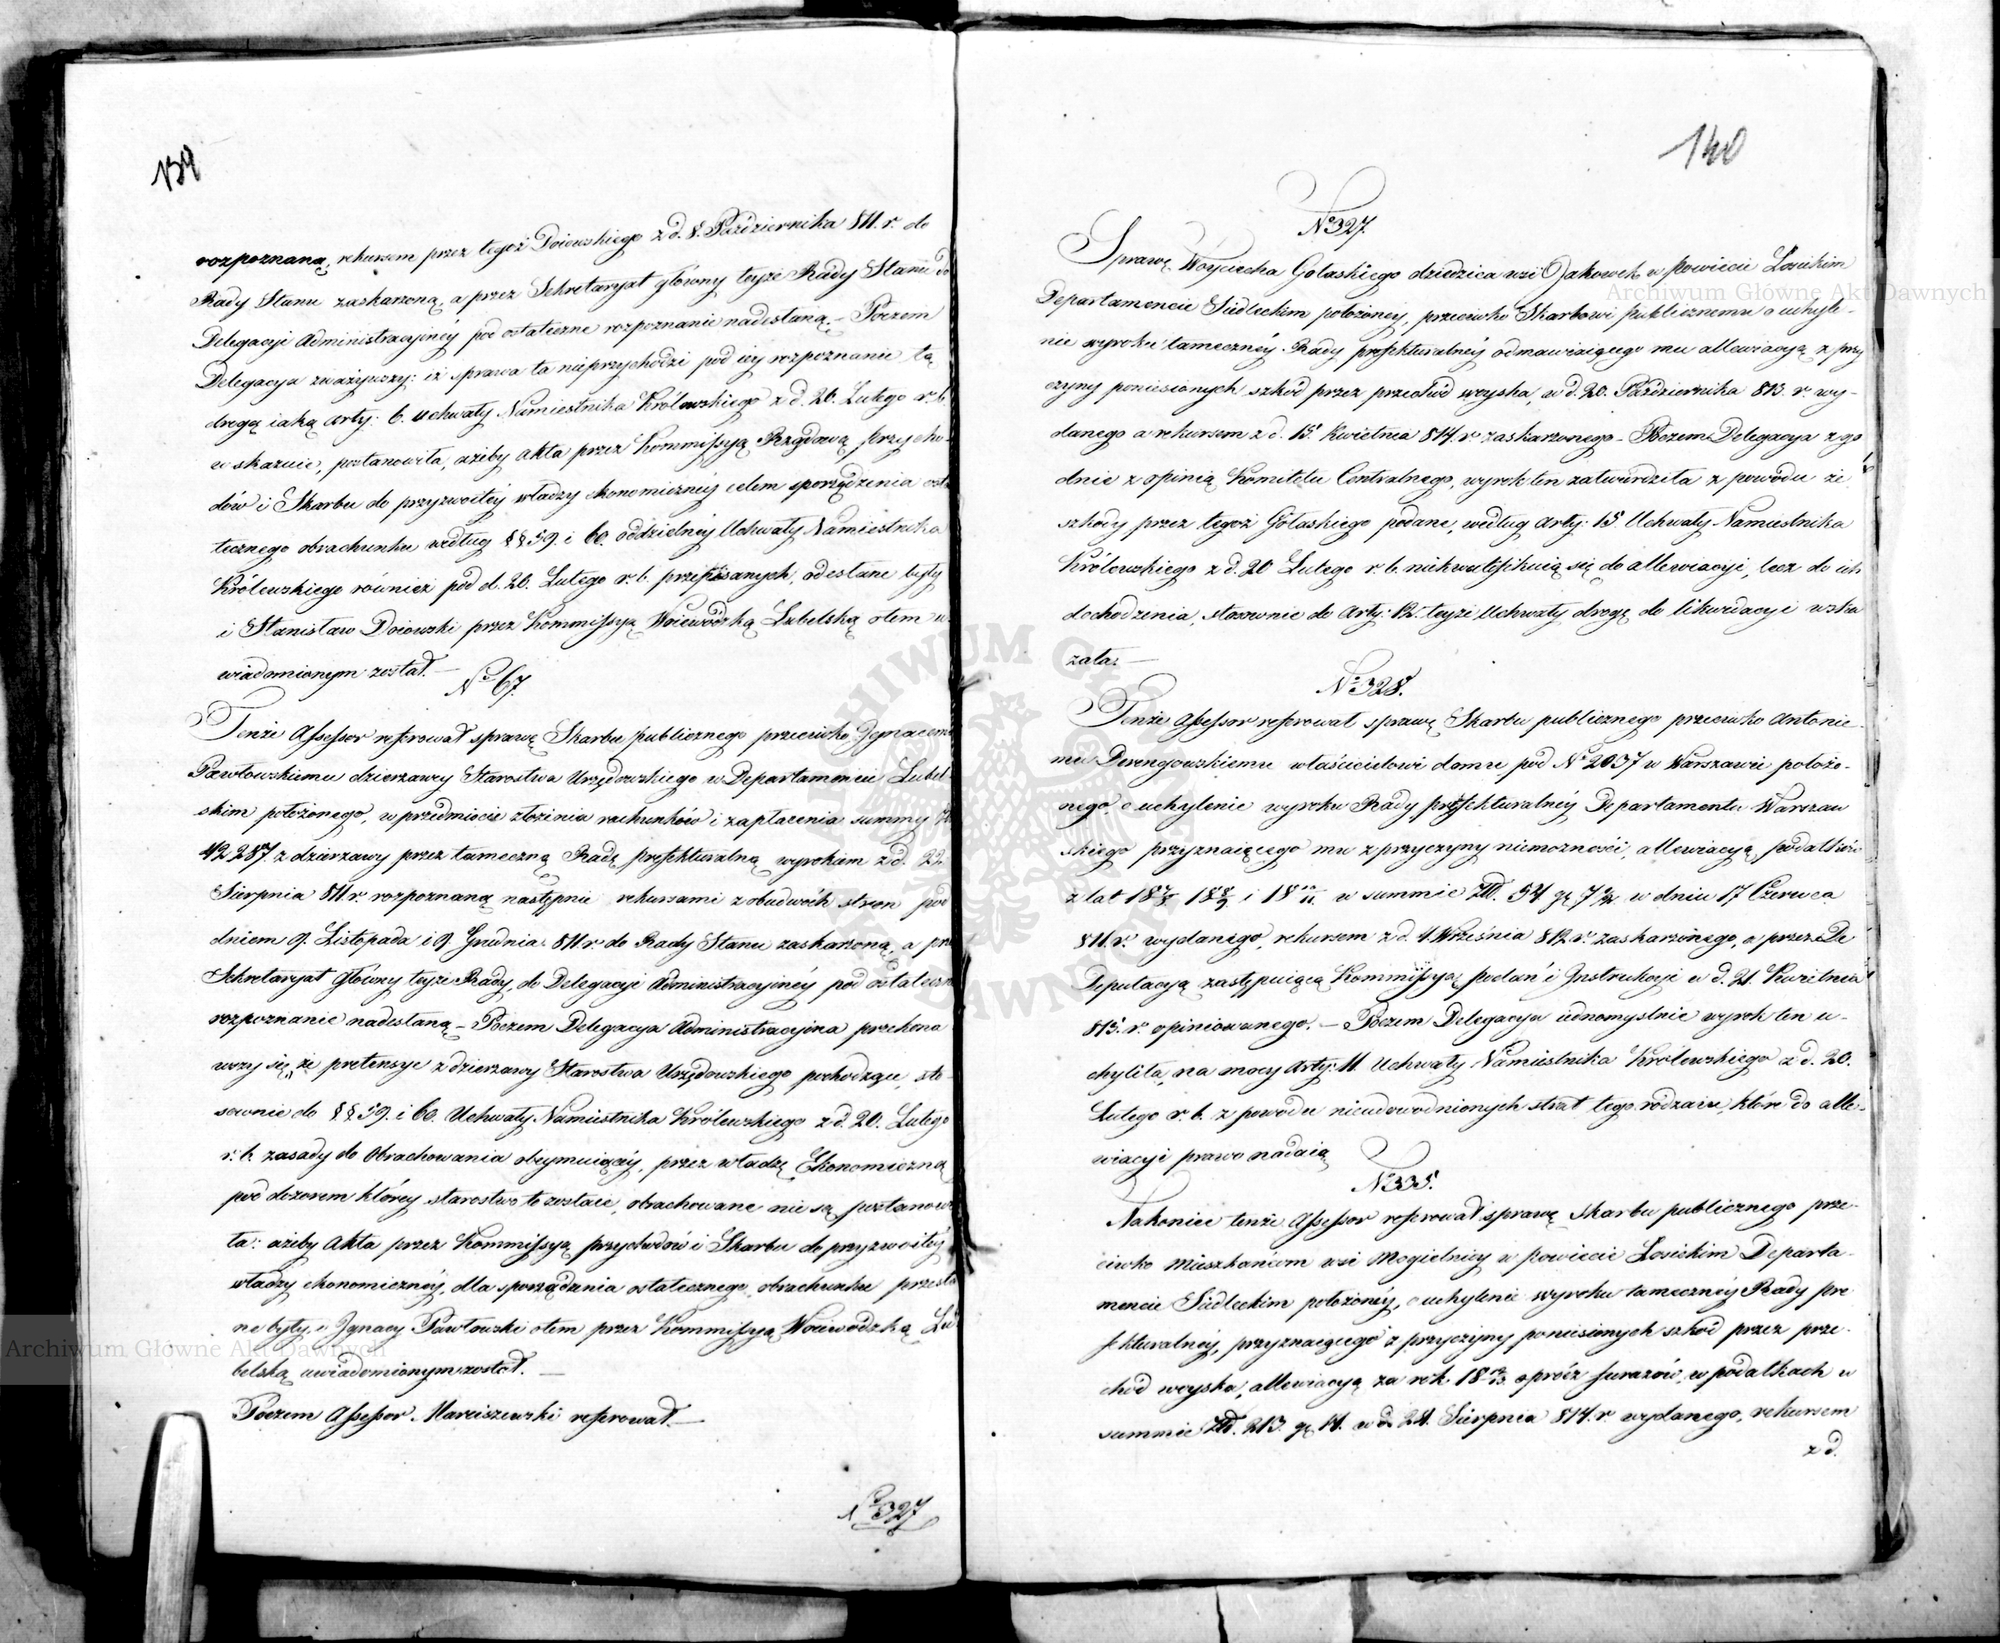 139
rozpoznaną, rekursem przez tegoż Doiowskiego z d. 8. Października 811. r. do
Rady Stanu zaskarżoną, a przez Sekretaryat główny teyże Rady Stanu do
Delegacyi Administracyinéy pod ostateczne rozpoznanie nadesłaną. – Poczem
Delegacya zważywszy: iż sprawa ta nieprzychodzi pod iéy rozpoznanie tą
drogą iaką Arty: 6. Uchwały Namiestnika Królewskiego z d. 20. Lutego r. b.
wskazuie, postanowiła, ażeby Akta przez Kommissyą Rządową Przycho-
dów i Skarbu do przyzwoitéy władzy ekonomicznéy celem sporządzenia osta
tecznego obrachunku według §§ 59. i 60. oddzielnéy Uchwały Namiestnika
Królewskiego również pod d. 20. Lutego r. b. przepisanych, odesłane były
i Stanisław Doiowski przez Kommissyą Woiewódzką Lubelską otem u-
wiadomionym został. —
No 67.
Tenże Assessor referował sprawę Skarbu publicznego przeciwko Ignacemu
Pawłowskiemu dzierzawcy Starostwa Urzędowskiego w Departamencie Lubel
skim położonego, w przedmiocie złożenia rachunków i zapłacenia summy
42287 z dzierzawy przez tameczną Radę prefekturalną wyrokiem z d. 22.
Sierpnia 811 r. rozpoznaną następnie rekursami z obudwóch stron pod
dniem 9. Listopada i 9. Grudnia 811 r. do Rady Stanu zaskarżoną, a prze
Sekretaryat Główny teyże Rady, do Delegacyi Administracyinéy pod ostateczn
rozpoznanie nadesłaną – Poczem Delegacya Administracyina przekona
wszy się, że pretensye z dzierzawy Starostwa Urzędowskiego pochodzące, sto-
sownie do §§ 59. i 60. Uchwały Namiestnika Królewskiego z d. 20. Lutego
r. b. zasady do Obrachowania obeymuiącéy, przez władzę Ekonomiczną
pod dozorem któréy starostwo to zostaie, obrachowane nie są, postanowi
ła: ażeby Akta przez Kommissyą Przychodów i Skarbu do przyzwoitéy
władzy ekonomicznéy, dla sporządzenia ostatecznego obrachunku przesła
ne były, a Ignacy Pawłowski otem przez Kommissyą Woiewodzką Lu
belską uwiadomionym został. —
Poczem Assessor Marciszewski referował. —
No 327
140
No 327.
Sprawę Woyciecha Gołaskiego dziedzica wsi Jakowek w Powiecie Losickim
Departamencie Siedleckim położonéy, przeciwko Skarbowi publicznemu o uchyle-
nie wyroku tamecznéy Rady prefekturalnéy odmawiaiącego mu allewiacyą z przy
czyny poniesionych szkód przez przechód woyska, w d. 20. Października 813. r. wy-
danego a rekursem z d. 15. Kwietnia 814. r. zaskarżonego – Poczem Delegacya zgo
dnie z opinią Komitetu Centralnego, wyrok ten zatwierdziła z powodu że
szkody przez tegoż Gołaskiego podane, według Arty: 15 Uchwały Namiestnika
Królewskiego z d. 20 Lutego r. b. niekwalifikuią się do allewiacyi, lecz do ich
dochodzenia, stosownie do Arty: 12. teyże Uchwały drogę do likwidacyi wska
zała. —
No 328.
Tenże Assessor referował sprawę Skarbu publicznego przeciwko Antonie-
mu Derengowskiemu właścicielowi domu pod No 2037 w Warszawie położo-
nego, o uchylenie wyroku Rady prefekturalnéy Departamentu Warszaw
skiego przyznaiącego mu z przyczyny niemożności, allewiacyą podatków
z lat 18 7/8 18 8/9 i 18 10/11 w summie Złł. 54 gr 7 1/2 w dniu 17 Czerwca
811. r. wydanego, rekursem z d. 4. Września 812. r. zaskarżonego, a przez De
Deputacyą zastępuiącą Kommissyą podań i Instrukcyi w d. 21. Kwietnia
815. r. opiniowanego. – Poczem Delegacya iednomyślnie wyrok ten u-
chyliła, na mocy Arty: 11. Uchwały Namiestnika Królewskiego z d. 20.
Lutego r. b. z powodu nieudowodnionych strat tego rodzaiu, które do alle-
wiacyi prawo nadaią
No 335.
Nakoniec tenże Assessor referował sprawę Skarbu publicznego prze-
ciwko Mieszkańcom wsi Mogielnicy w Powiecie Łosickim Departa-
mencie Siedleckim położonéy, o uchylenie wyroku tamecznéy Rady pre
fekturalnéy, przyznaiącego z przyczyny poniesionych szkód przez prze-
chod woyska, allewiacyą za rok 18 12/13 oprócz furażów, w podatkach w
summie Złł. 213. gr 14. w d. 24. Sierpnia 814. r. wydanego, rekursem
z d.
Archiwum Główne Akt Dawnych
Archiwum Główne Akt Dawnych
ARCHIWUM GŁÓWNE AKT DAWNYCH